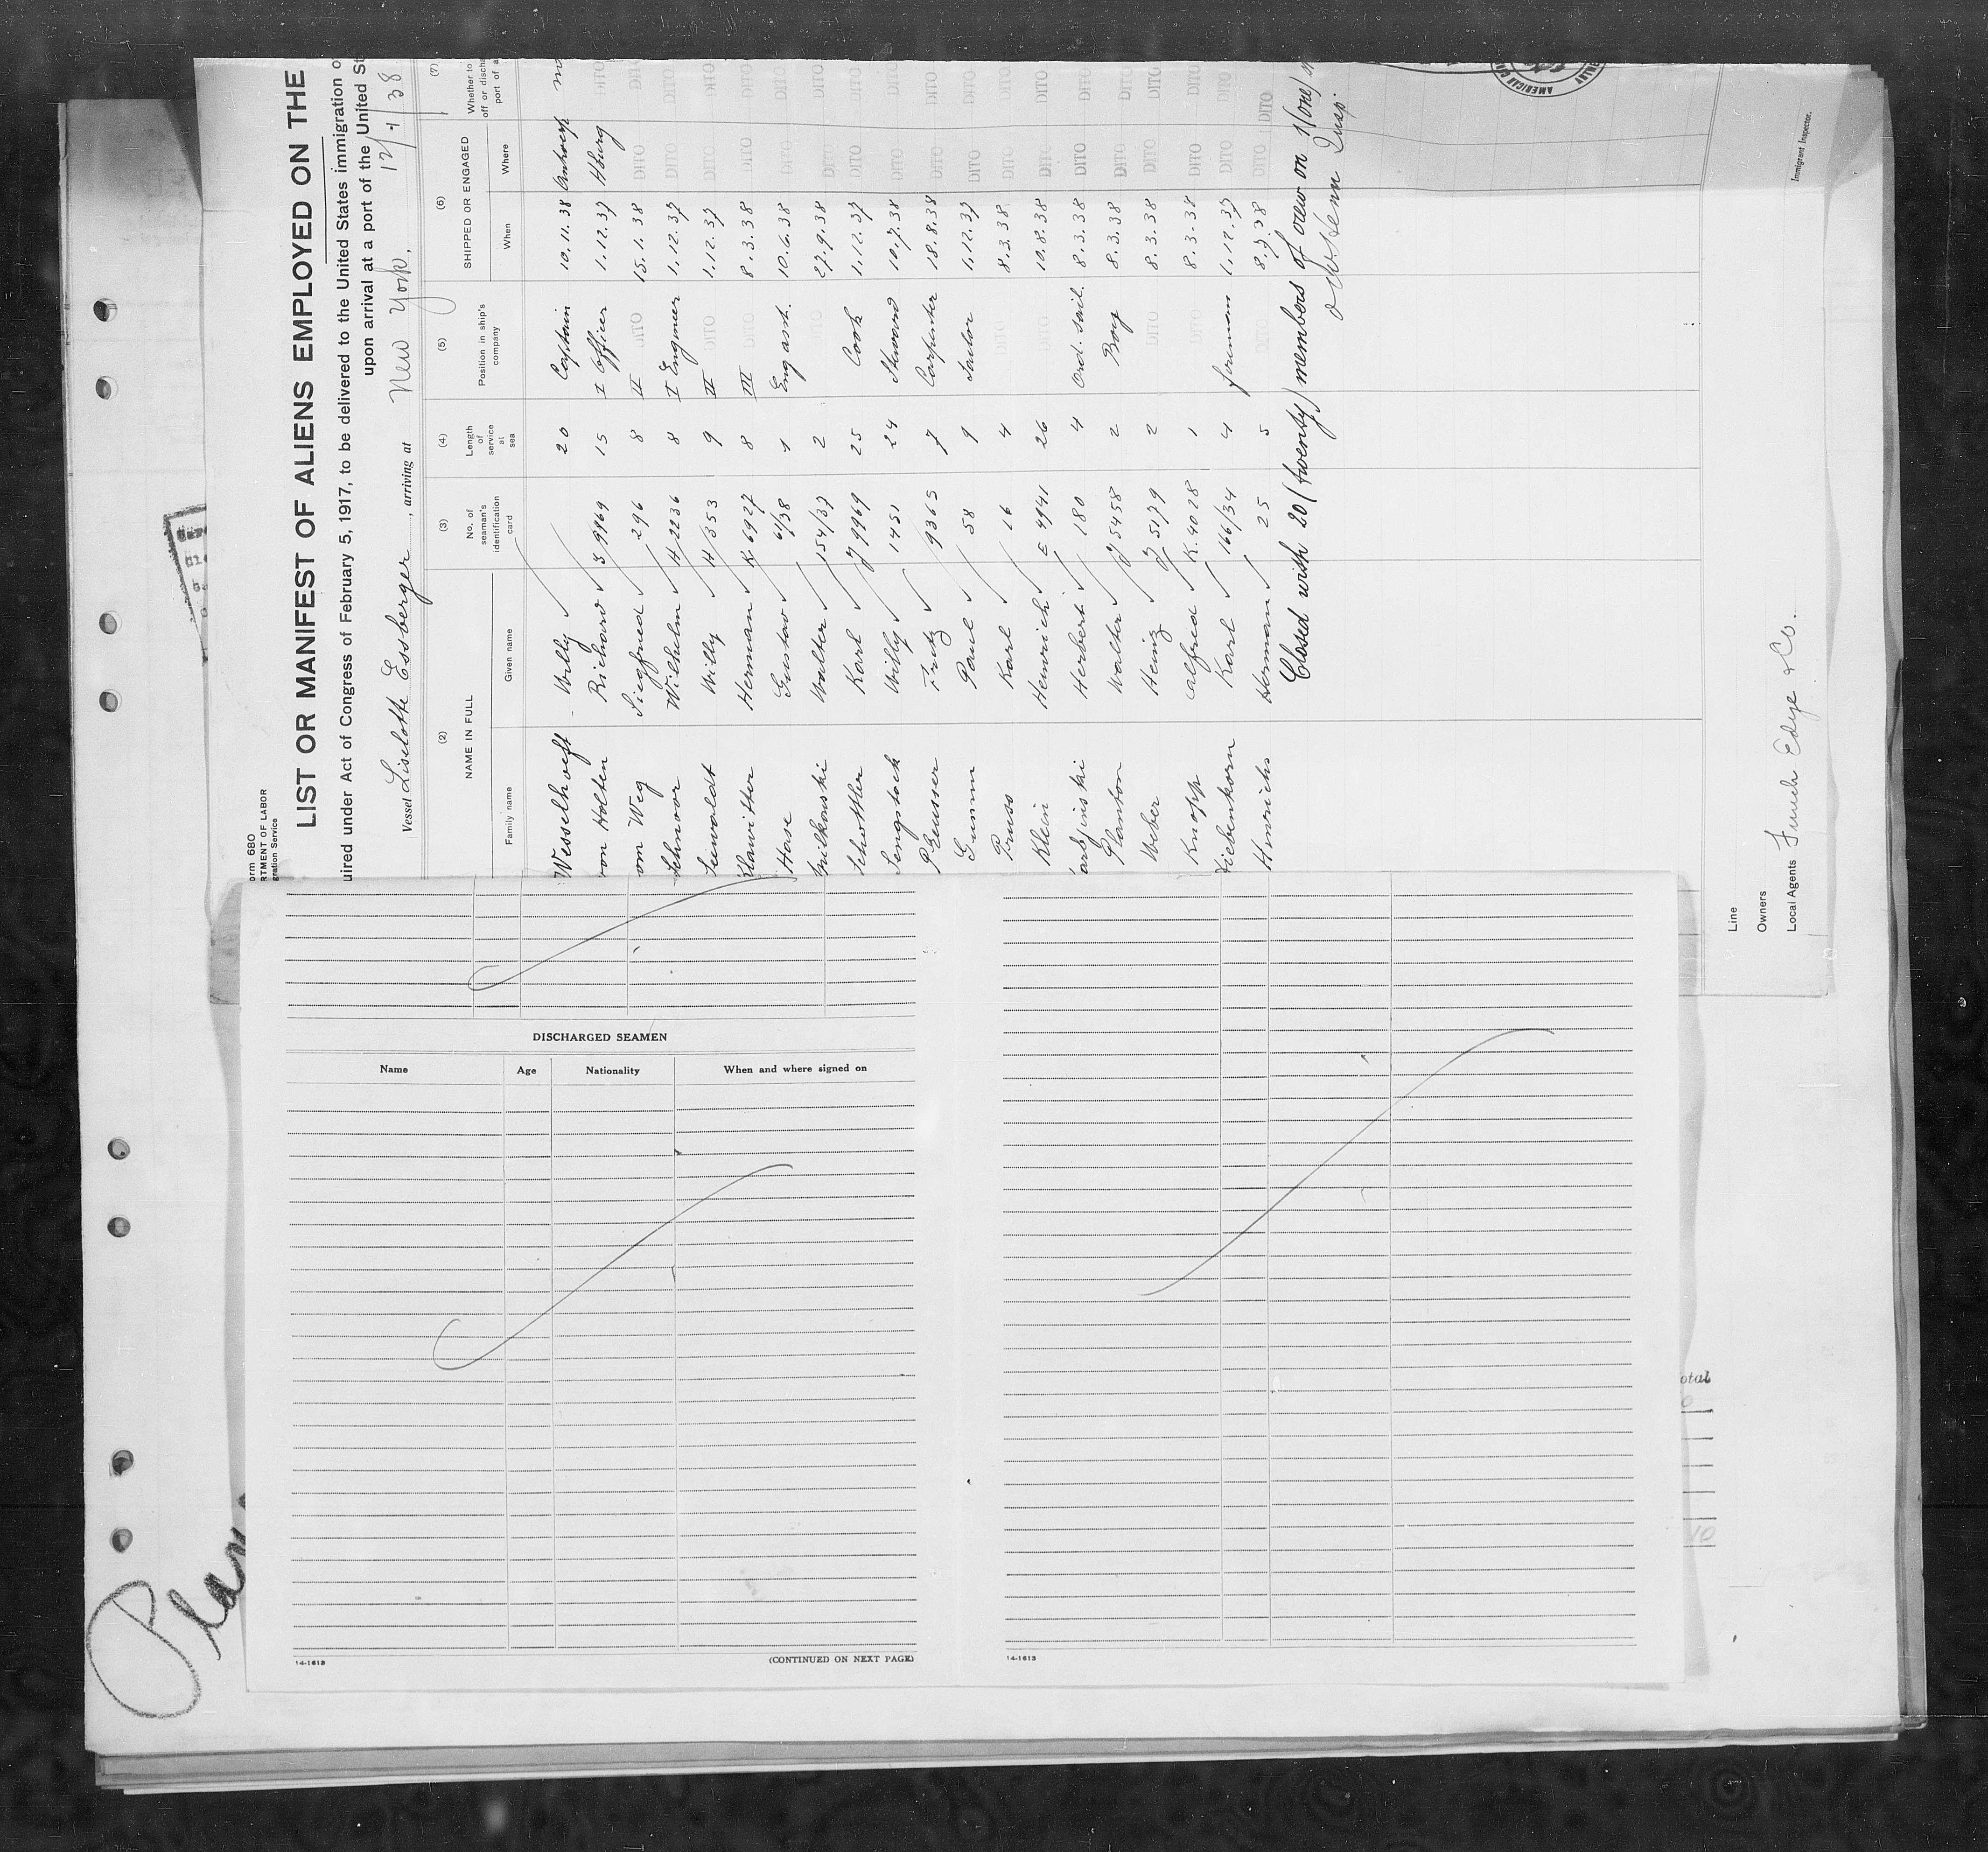 orm 680
RTMENT OF LABOR
gration Service
LIST OR MANIFEST OF ALIENS EMPLOYED ON THE
uired under Act of Congress of February 5, 1917, to be delivered to the United States immigration o
upon arrival at a port of the United St
Vessel Liselotte Essberger, arriving at New York, 12/4/38
(2) (3) (4) (5) (6) (7)
NAME IN FULL No. of seaman's identification card Length of service at sea Position in ship's company SHIPPED OR ENGAGED Whether to off or discha port of a
Family name Given name When Where
Wesselhoeft Willy 20 Captain 10.11.38
von Holten Richard 9969 15 I Officer 1.12.37 Hburg DITO
om Weg Siegfried 296 8 II DITO 15.1.38 DITO DITO
Schnoor Wilhelm H 2236 8 I Engineer 1.12.37 DITO DITO
Seewaldt Willy H 353 9 II DITO 1.12.37 DITO DITO
Klawitter Herman K 6927 8 III DITO 8.3.38 DITO DITO
Hase Gustav 61/38 1 Eng asst. 10.6.38 DITO DITO
Walter 154/37 2 DITO 27.9.38 DITO DITO
Schottler Karl 9969 25 Cook 1.12.37 DITO DITO
Sengstock Willy 1451 24 Steward 10.7.38 DITO DITO
Preusser Fritz 9365 7 Carpenter 18.8.38 DITO DITO
Grumm Paul 58 9 Sailor 1.12.37 DITO DITO
Pruss Karl 16 4 DITO 8.3.38 DITO DITO
Klein Heinrich 4941 26 DITO 10.8.38 DITO DITO
Herbert 180 4 Ord. sail. 8.3.38 DITO DITO
Planton Walter 5458 2 Boy 8.3.38 DITO DITO
Weber Heinz 5179 2 DITO 8.3.38 DITO DITO
Knopp Alfred K. 4028 1 DITO 8.3.38 DITO DITO
Fiebenkorn Karl 166/34 4 fireman 1.12.37 DITO DITO
Hinrichs Herman 25 5 DITO 8.3.38 DITO DITO
Closed with 20 (twenty) members of crew on 1 (one)
Insp.
AMERICAN
Immigrant Inspector.
Line
Owners
Local Agents Funch Edye & Co.
DISCHARGED SEAMEN
Name Age Nationality When and where signed on
14-1613 (CONTINUED ON NEXT PAGE)
14-1613
otal
0
10
Plan